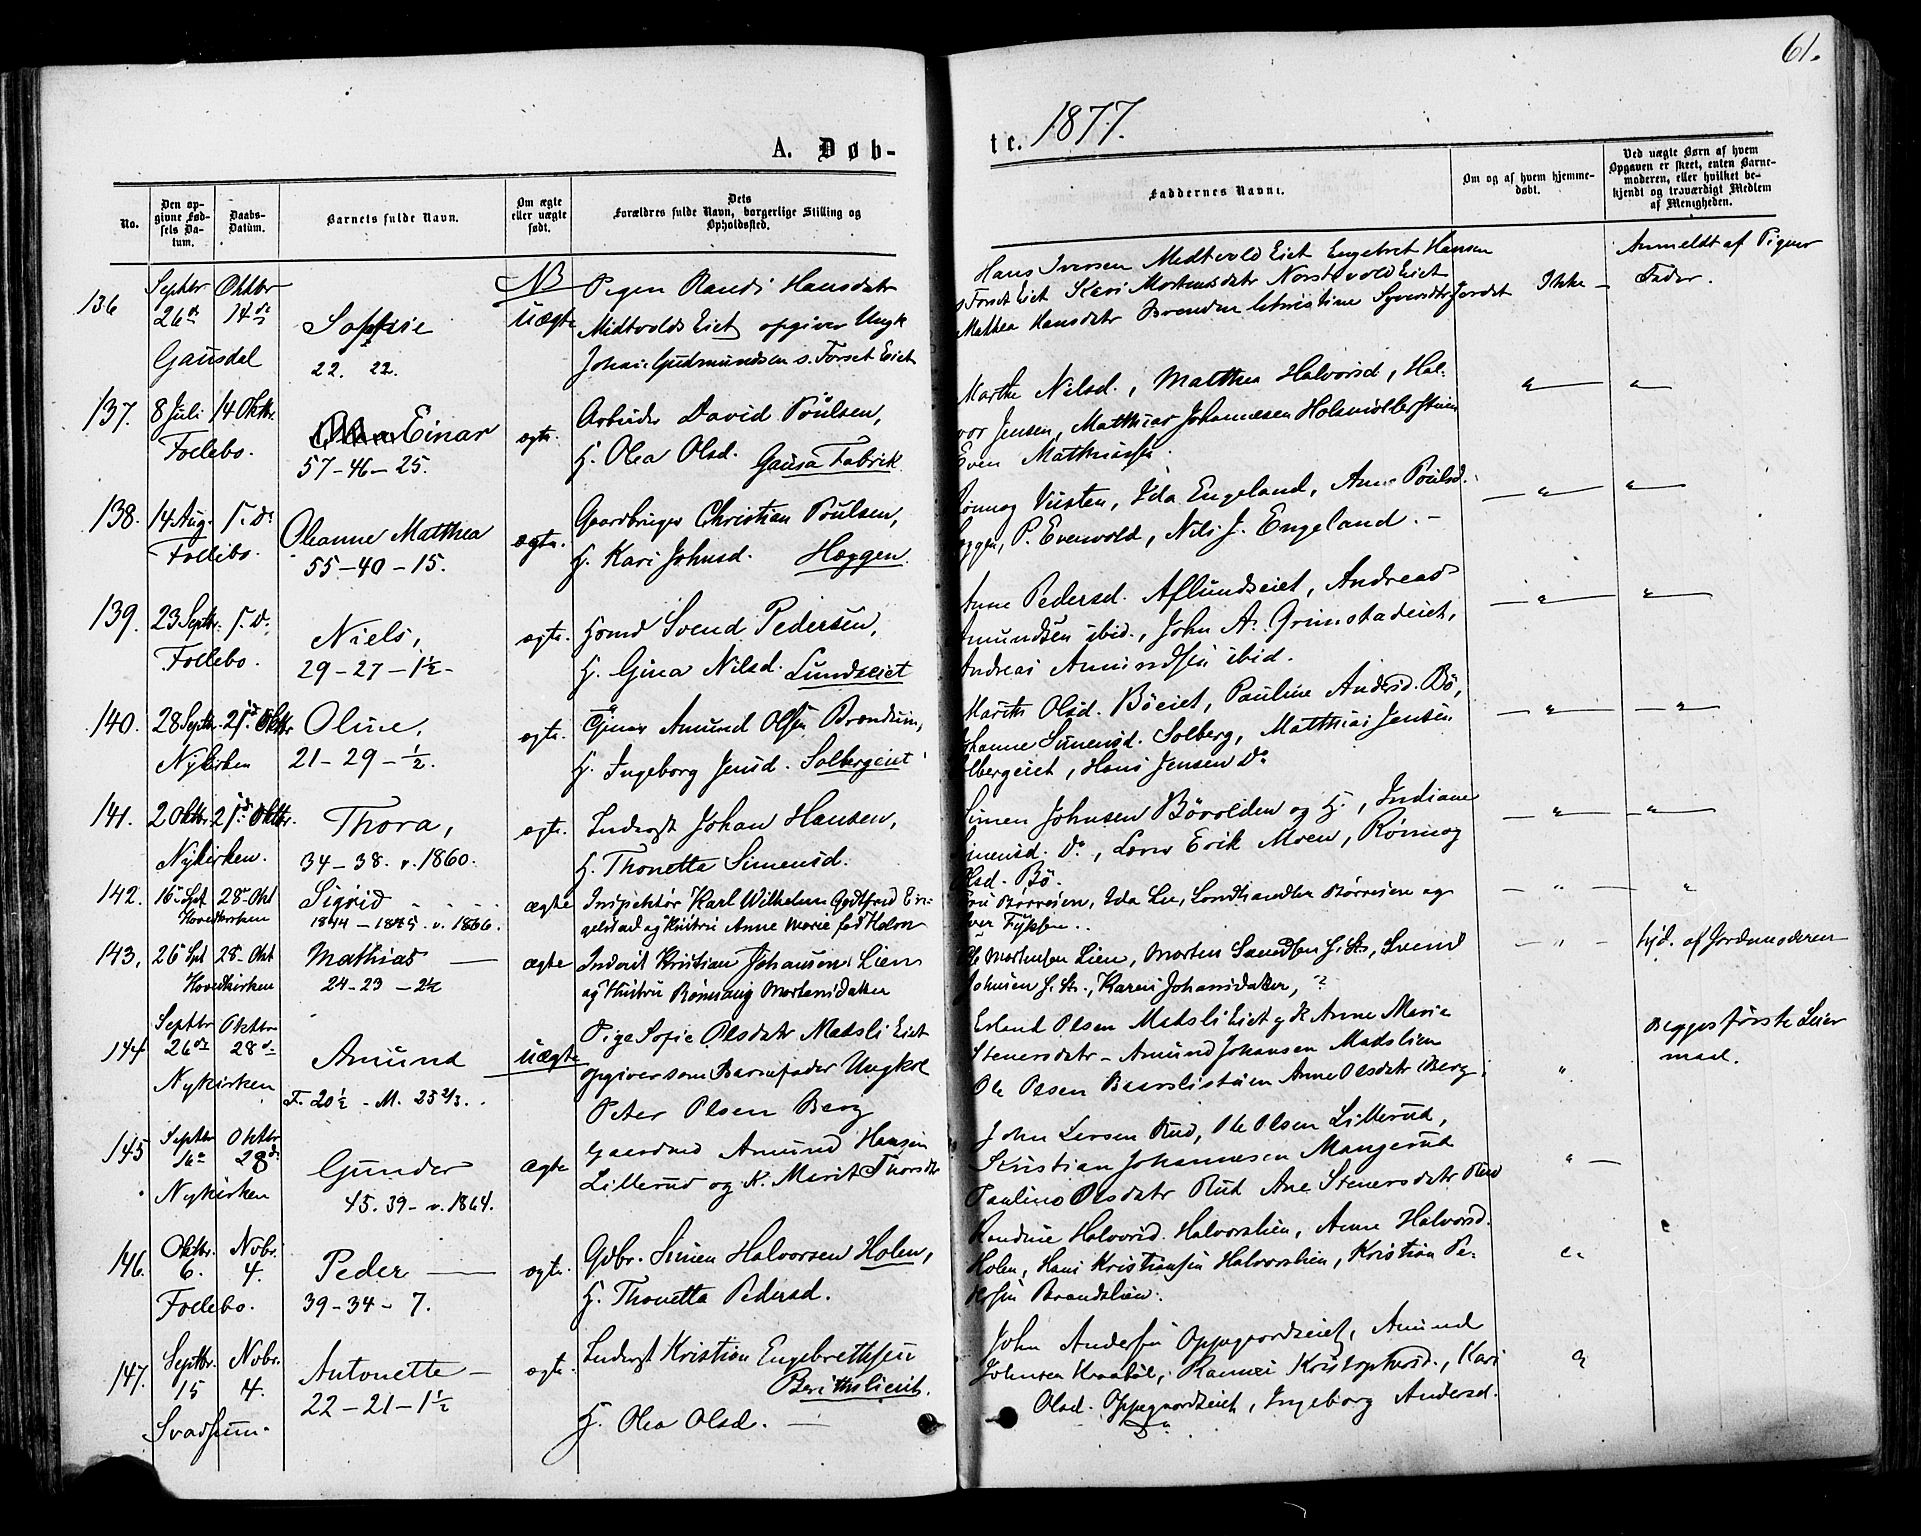 61.
A. Døb-
te. 1877.
No.
Den op-
givne Fød-
sels Da-
tum.
Daabs-
Datum.
Barnets fulde Navn.
Om ægte
eller uægte
født.
Dets
Forældres fulde Navn, borgerlige Stilling og
Opholdssted.
Faddernes Navne.
Om og af hvem hjemme-
døbt.
Ved uægte Børn af hvem
Opgaven er skeet, enten Barne-
moderen, eller hvilket be-
kjendt og troværdigt Medlem
af Menigheden.
136
Septbr
26de
Gausdal
Oktbr
14de
Sophie
22. 22.
NB
uægte
Pigen Randi Hansdatr
Midtvolds Eiet opgiver Ungk
Johan Gudmundsen s. Forset Eiet
Hans Iversen Midtvold Eiet Engebret Hansen
s Forset Eiet Kari Mortensdatr Nordstvold Eiet
Mathea Hansdatr Brenden Christine Syversdtr Jordet
Ikke
Anmeldt af Pigens
Fader.
137.
8 Juli
14 Oktbr.
Follebo.
Einar
57-46-25.
egte.
Arbeider David Poulsen,
H. Olea Olsd. Gausa Fabrik
Marthe Nilsd., Matthea Halvorsd, Hal-
vor Jensen, Matthias Johannesen Holsmøllerstuen
Even Matthiass.
138.
14 Aug.
s. D.
Follebo.
Oleanne Matthea
55-40-15.
ægte.
Gaardbruger Christian Poulsen,
H. Kari Johnsd. Hæggen.
Rønnog Vusten, Ida Engeland, Anne Poulsd.
Hæggen, P. Evenvold, Nils J. Engeland.-
139.
23 Septbr.
s. D.
Follebo.
Niels,
29-27-1½-
egte.
Hsmd Svend Pedersen,
H. Gina Nilsd. Lundseiet
Anne Pedersd. Aflundseiet, Andreas
Amundsen ibid., John A. Grimstadeiet,
Andreas Amundsen ibid.
140.
28 Septbr.
21de Oktbr
Nykirken
Oline,
21-29-½.
egte.
Tjener Amund Olsen Brendum,
H. Ingeborg Jensd. Solbergeiet
Marith Olsd. Böeiet, Pauline Andersd. Bö,
Johanne Simensd. Solberg, Matthias Jensen
Solbergeiet, Hans Jensen Do
141.
2 Oktbr.
21de Oktbr.
Nykirken.
Thora,
34-38. v. 1860.
egte.
Inderst Johan Hansen,
H. Thonetta Simensd.
Simen Johnsen Bövolden og H., Indiane
Simensd. Do, Lærer Erik Moen, Rønnog
Olsd. Bö.
142.
16 Spt.
28 Okt
Hovedkirken
Sigrid
1844-1845. v. 1866.
ægte
Inspektör Karl Wilhelm Gotfred En-
gelstad og Hustru Anne Marie fød Holm
Börresen, Ida Lie, Landhandler Börresen og
143.
26 Spt
28 Okt
Hovedkirken
Mathias
24-23-2½
ægte
Inderst Kristian Johansen Lien
og Hustru Rønnaug Mortensdatter
Ole Mortensen Lien, Morten Svendsen, Svend
Johnsen, Karen Johansdatter, ?
Lyd. af Jordmoderen
144
Septbr
26de
Oktbr
28de
Nykirken
Amund
F. 20½ - M. 25⅔.
uægte
Pige Sofie Olsdatr Madsli Eiet
opgiver som Barnefader Ungkrl
Peter Olsen Berg
Erland Olsen Madsli Eiet og K Anne Marie
Stenersdatr - Amund Johansen Madslien
Ole Olsen Baarslistuen Anne Olsdatr Berg.
Begges første Leier
maal.
145
Septbr
16de
Oktbr
28de
Nykirken
Gunder
45. 39- v. 1864.
ægte
Gaardmd Amund Hansen
Lillerud og K. Marit Thorsdtr
John Larsen Rud, Ole Olsen Lillerud,
Kristian Johannesen Mangerud
Pauline Olsdatr Rud Ane Stenersdatr Rud
146.
Oktbr.
6.
Nobr.
4.
Follebo.
Peder
39-34-7.
egte.
Gdbr. Simen Halvorsen Holen,
H. Thonetta Pedersd.
Randine Halvorsd. Halvorslien, Anne Halvorsd.
Holen, Hans Kristiansen Halvorslien, Kristian Pe-
dersen Brandslien.
147.
Septbr.
15
Nobr.
4.
Svadsum.
Antonette-
22-21-1½
egte.
Inderst Kristian Engebrethsen
Berithslieeit.
H. Olea Olsd.
John Andersen Oppegaardseiet, Amund
Johnsen Kraaböl, Ranni Kristophersd., Kari
Olsd. Oppegaardseiet, Ingeborg Andersd.
Do